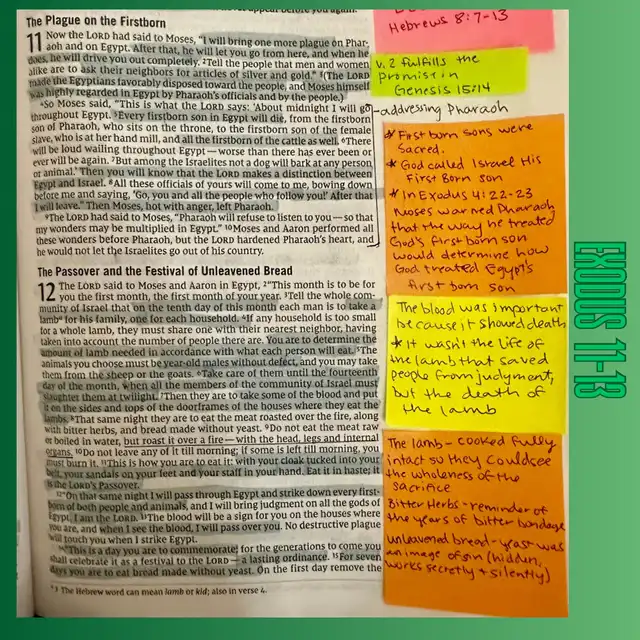 appear before you again.
The Plague on the Firstborn
11 Now the LORD had said to Moses, "I will bring one more plague on Phar-
aoh and on Egypt. After that, he will let you go from here, and when he
does, he will drive you out completely. 2Tell the people that men and women
alike are to ask their neighbors for articles of silver and gold." 3(The LORD
made the Egyptians favorably disposed toward the people, and Moses himself
was highly regarded in Egypt by Pharaoh's officials and by the people.)
4So Moses said, "This is what the LORD says: 'About midnight I will go
throughout Egypt. 5Every firstborn son in Egypt will die, from the firstborn
son of Pharaoh, who sits on the throne, to the firstborn son of the female
slave, who is at her hand mill, and all the firstborn of the cattle as well. 6There
will be loud wailing throughout Egypt — worse than there has ever been or
ever will be again. 7But among the Israelites not a dog will bark at any person
or animal.' Then you will know that the LORD makes a distinction between
Egypt and Israel. 8All these officials of yours will come to me, bowing down
before me and saying, 'Go, you and all the people who follow you!' After that
I will leave." Then Moses, hot with anger, left Pharaoh.
9The LORD had said to Moses, "Pharaoh will refuse to listen to you — so that
my wonders may be multiplied in Egypt." 10Moses and Aaron performed all
these wonders before Pharaoh, but the LORD hardened Pharaoh's heart, and
he would not let the Israelites go out of his country.
The Passover and the Festival of Unleavened Bread
12 The LORD said to Moses and Aaron in Egypt, 2"This month is to be for
you the first month, the first month of your year. 3Tell the whole com-
munity of Israel that on the tenth day of this month each man is to take a
lamb a for his family, one for each household. 4If any household is too small
for a whole lamb, they must share one with their nearest neighbor, having
taken into account the number of people there are. You are to determine the
amount of lamb needed in accordance with what each person will eat. 5The
animals you choose must be year-old males without defect, and you may take
them from the sheep or the goats. 6Take care of them until the fourteenth
day of the month, when all the members of the community of Israel must
slaughter them at twilight. 7Then they are to take some of the blood and put
it on the sides and tops of the doorframes of the houses where they eat the
lambs. 8That same night they are to eat the meat roasted over the fire, along
with bitter herbs, and bread made without yeast. 9Do not eat the meat raw
or boiled in water, but roast it over a fire — with the head, legs and internal
organs. 10Do not leave any of it till morning; if some is left till morning, you
must burn it. 11This is how you are to eat it: with your cloak tucked into your
belt, your sandals on your feet and your staff in your hand. Eat it in haste; it
is the LORD's Passover.
12"On that same night I will pass through Egypt and strike down every first-
born of both people and animals, and I will bring judgment on all the gods of
Egypt. I am the LORD. 13The blood will be a sign for you on the houses where
you are, and when I see the blood, I will pass over you. No destructive plague
will touch you when I strike Egypt.
14"This is a day you are to commemorate; for the generations to come you
shall celebrate it as a festival to the LORD — a lasting ordinance. 15For seven
days you are to eat bread made without yeast. On the first day remove the
a 3 The Hebrew word can mean lamb or kid; also in verse 4.
Hebrews 8:7-13
v. 2 fulfills the
promise in
Genesis 15:14
addressing Pharaoh
* First born sons were
Sacred.
* God called Israel His
First Born son
* In Exodus 4:22-23
Moses warned Pharaoh
that the way he treated
God's first born son
would determine how
God treated Egypt's
first born son
The blood was important
because it showed death
* It wasn't the life of
the lamb that saved
people from judgment,
but the death of
the lamb
The lamb - cooked fully
intact so they could see
the wholeness of the
sacrifice
Bitter Herbs - reminder of
the years of bitter bondage
unleavened bread - yeast was
an image of sin (hidden,
works secretly + silently)
EXODUS 11-13